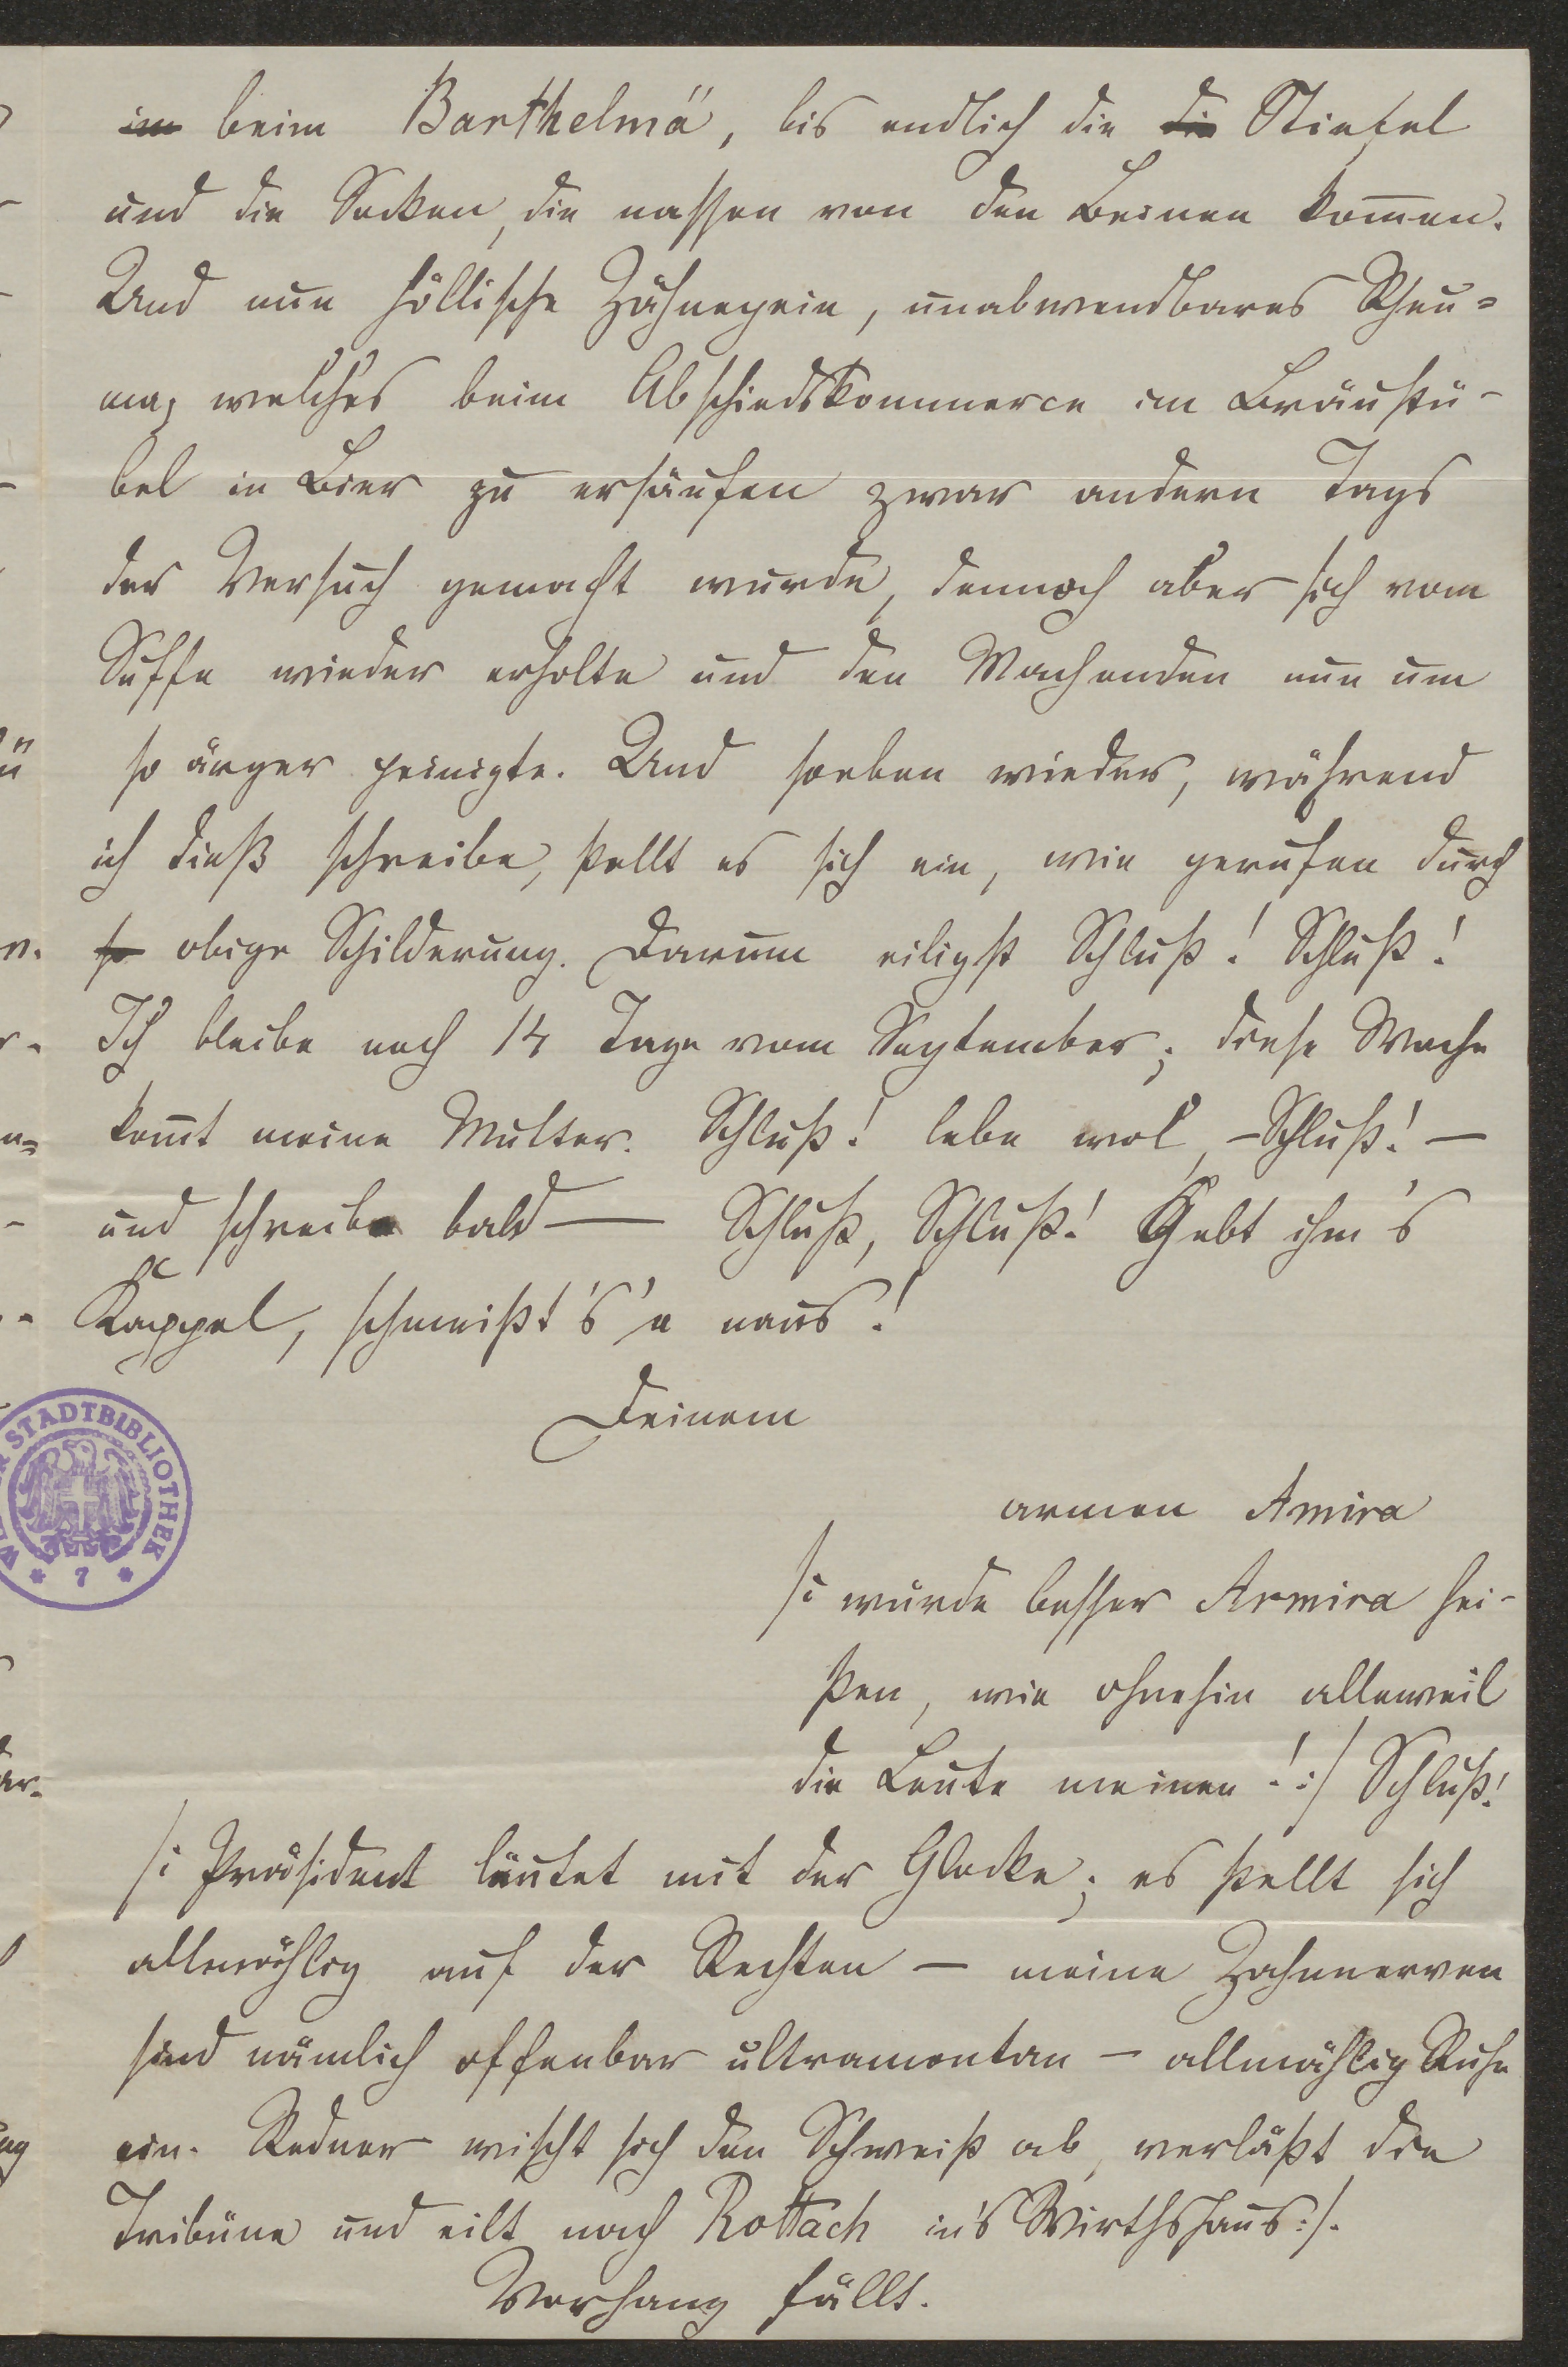 im beim Barthelmä, bis endlich die die Stiefel
und die Socken, die nassen von den Beinen kommen.
Und nun höllische Zähnepein, unabwendbares Rheu-
ma, welches beim Abschiedskommerce im Bräustü-
bel in Bier zu ersäufen zwar andern Tags
der Versuch gemacht wurde, dennoch aber sich vom
Suffe wieder erholte und den Wachenden nun um
so ärger peinigte. Und soeben wieder, während
ich dieß schreibe, stellt es sich ein, wie gerufen durch
so obige Schilderung. Darum eiligst Schluß! Schluß!
Ich bleibe noch 14 Tage vom September; diese Woche
kommt meine Mutter. Schluß! lebe wol, – Schluß! –
und schreibe bald — Schluß, Schluß! Gebt ihm's
Kappel, schmeißt's'n naus!
Deinem
armen Amira
/: würde besser Armira hei-
ßen, wie ohnehin alleweil
die Leute meinen! :/ Schluß!
/: Präsident läutet mit der Glocke; es stellt sich
allmählig auf der Rechten – meine Zahnnerven
sind nämlich offenbar ultramontan – allmählig Ruhe
ein. Redner wischt sich den Schweiß ab, verläßt die
Tribüne und eilt nach Rottach in's Wirthshaus :/.
Vorhang fällt.
STADTBIBLIOTHEK
* 7 *